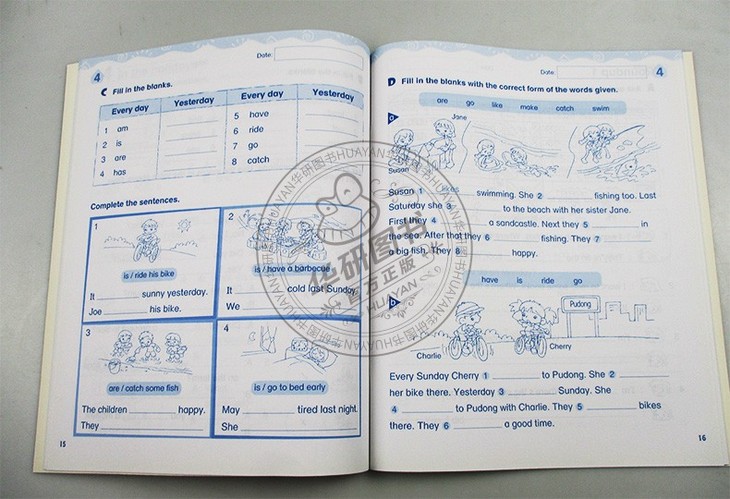 Date:
4
C Fill in the blanks.
Every day Yesterday Every day Yesterday
1 am
2 is
3 are
4 has
5 have
6 ride
7 go
8 catch
Complete the sentences.
1
is / ride his bike
It ______ sunny yesterday.
Joe ______ his bike.
2
is / have a barbecue
It ______ cold last Sunday.
We ______
3
are / catch some fish
The children ______ happy.
They ______
4
is / go to bed early
May ______ tired last night.
She ______
15
Date:
4
D Fill in the blanks with the correct form of the words given.
are go like make catch swim
a
Jane
Susan
Susan 1 likes swimming. She 2 ______ fishing too. Last
Saturday she 3 ______ to the beach with her sister Jane.
First they 4 ______ a sandcastle. Next they 5 ______ in
the sea. After that they 6 ______ fishing. They 7 ______
a big fish. They 8 ______ happy.
have is ride go
b
Pudong
Charlie
Cherry
Every Sunday Cherry 1 ______ to Pudong. She 2 ______
her bike there. Yesterday 3 ______ Sunday. She
4 ______ to Pudong with Charlie. They 5 ______ bikes
there. They 6 ______ a good time.
16
华研图书
官方正版
HUAYAN华研图书HUAYAN华研图书